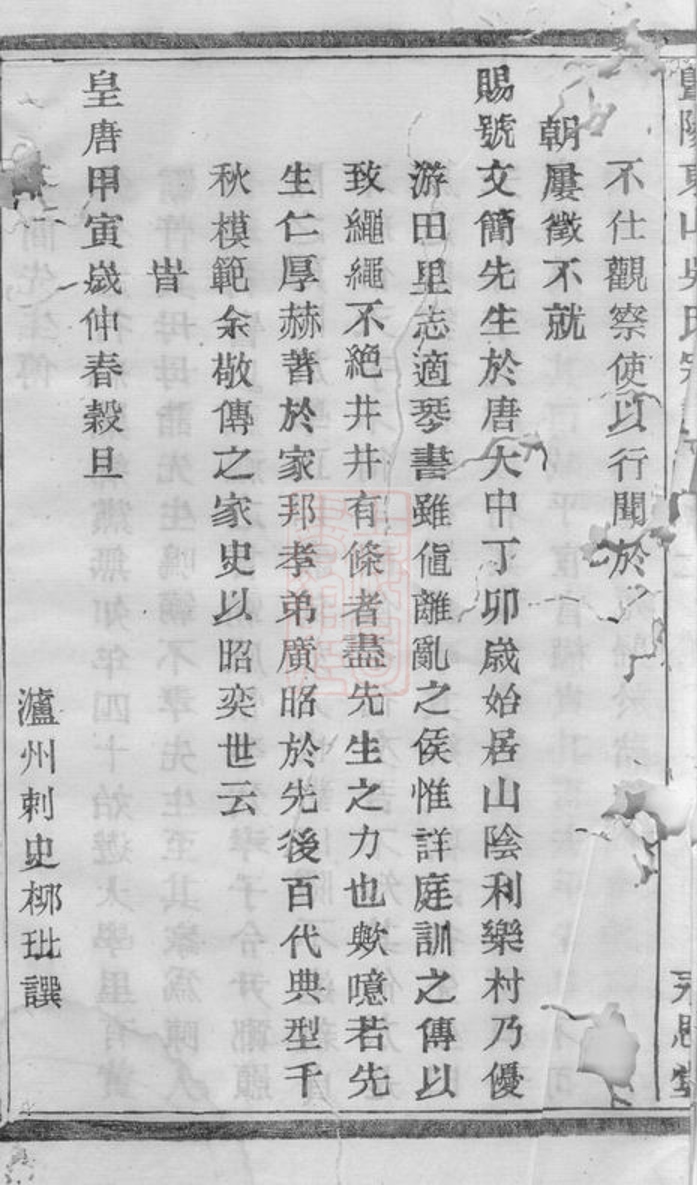 暨陽東山吳氏宗
不仕觀察使以行聞於
朝屢徵不就
賜號文簡先生於唐大中丁卯歲始居山陰利樂村乃優
游田里志適琴書雖值離亂之俟惟詳庭訓之傳以
致繩繩不絶井井有條者盡先生之力也歟噫若先
生仁厚赫著於家邦孝弟廣昭於先後百代典型千
秋模範余敬傳之家史以昭奕世云
旹
皇唐甲寅歲仲春榖旦
瀘州刺史柳玭譔